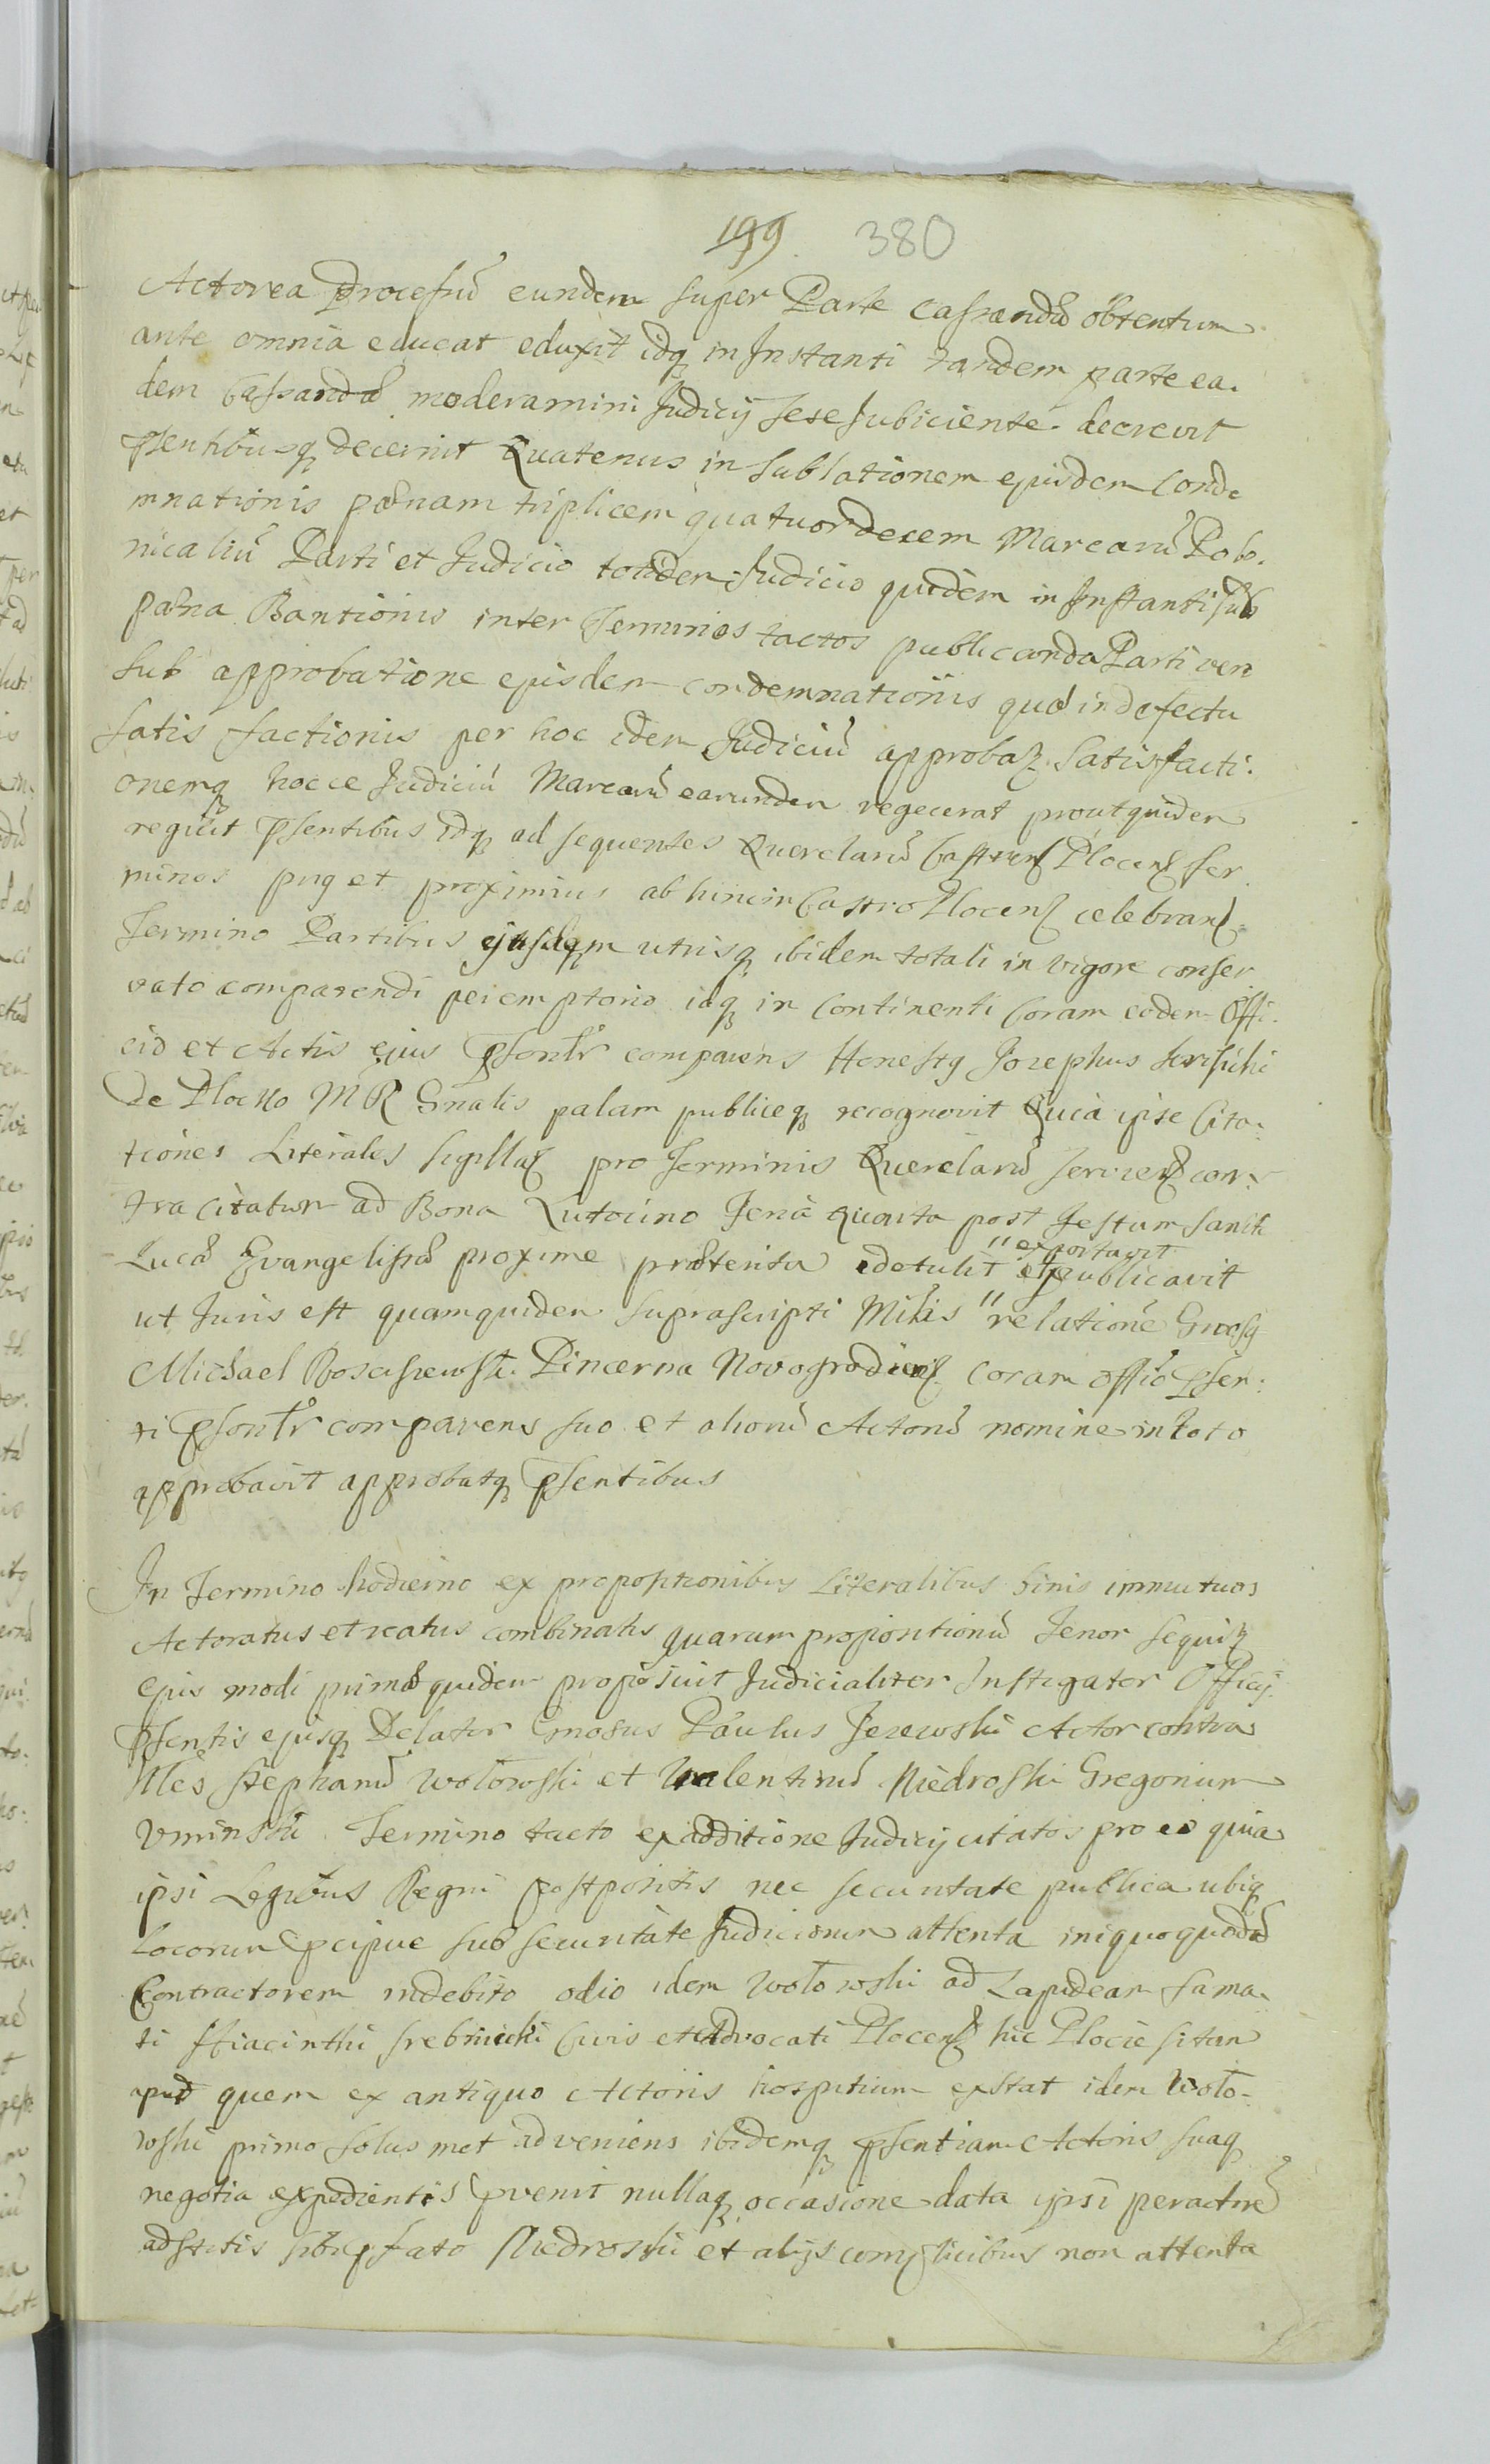 199. 380
Actorea Processu eundem super Parte cassanda obtentum
ante omnia educat eduxit idq in Instanti tandem parte ea.
dem Cassanda moderamini Judicij sese subiciente decrevit
psentibusq decernit Quatenus in sublationem ejusdem Conde
mnationis pænam triplicem quatuordecem Marcarū Polo.
nicaliū Parti et Judicio totidem Judicio quidem in Instanti sub
pæna Banitionis inter Terminos tactos publicanda Parti vero
sub approbatione ejusdem condemnationis quæ in defectu
satis factionis per hoc idem Judiciū approbat. Satisfacti.
onemq hocce Judiciū Marcarū earundem regecerat prout quidem
regicit psentibus idq ad sequentes Querelarū Castren Plocen Ter
minos pug et proximius ab hinc in Castro Plocen celebran
Termino Partibus utrisq ibidem totali in vigore conser
vato comparendi peremptorio idq in Continenti Coram eodem Offi.
cio et Actis ejus psonlr comparens Honestq Josephus
de Plocko M R Gnalis palam publiceq recognovit Quia ipse Cita:
tiones Literales sigillat pro Terminis Querelarū servien con:
tra citatum ad Bona Lutocino Feria Quarta post Festum Sancti
Lucæ Evangelistæ proxime præterita detulit "exportavit et publicavit
ut Juris est quamquidem suprascripti Mnlis "relatione Gnosq
Michael Rosciszewski Pincerna Novogrodien coram officio psen:
ti psonlr comparens suo et aliorū Actorū nomine in toto
approbavit approbatq psentibus
In Termino hodierno ex propositionibus Literalibus binis immutuos
Actoratus et reatus combinatis quarum propositionū Tenor sequit
ejus modi primæ quidem proposuit Judicialiter Instigator Officij
psentis ejusq Delator Gnosus Paulus Jezewski Actor contra
Nles Stephanū Wołowski et Valentinū Niedroski Gregorium
Uminski Termino tacto ex additione Judicij citatos pro eo quia
ipsi Legibus Regni postpositis nec securitate publica ubiq
Locorum pcipue sub securitate Judiciorum attenta iniquo quodā
Contractorem indebito odio idem Wołowski ad Lapideam fama.
ti Hiacinthi Srebnicki Civis et Advocati Plocen hic Plocie sitam
apud quem ex antiquo Actoris hospitium exstat idem Woło-
wski primo solus met adveniens ibidemq psentiam Actoris suaq
negotia expedientis pvenit nullaq occasione data ipsi per actorē
adstitis sibi pfato Niedroski et alijs complicibus non attenta